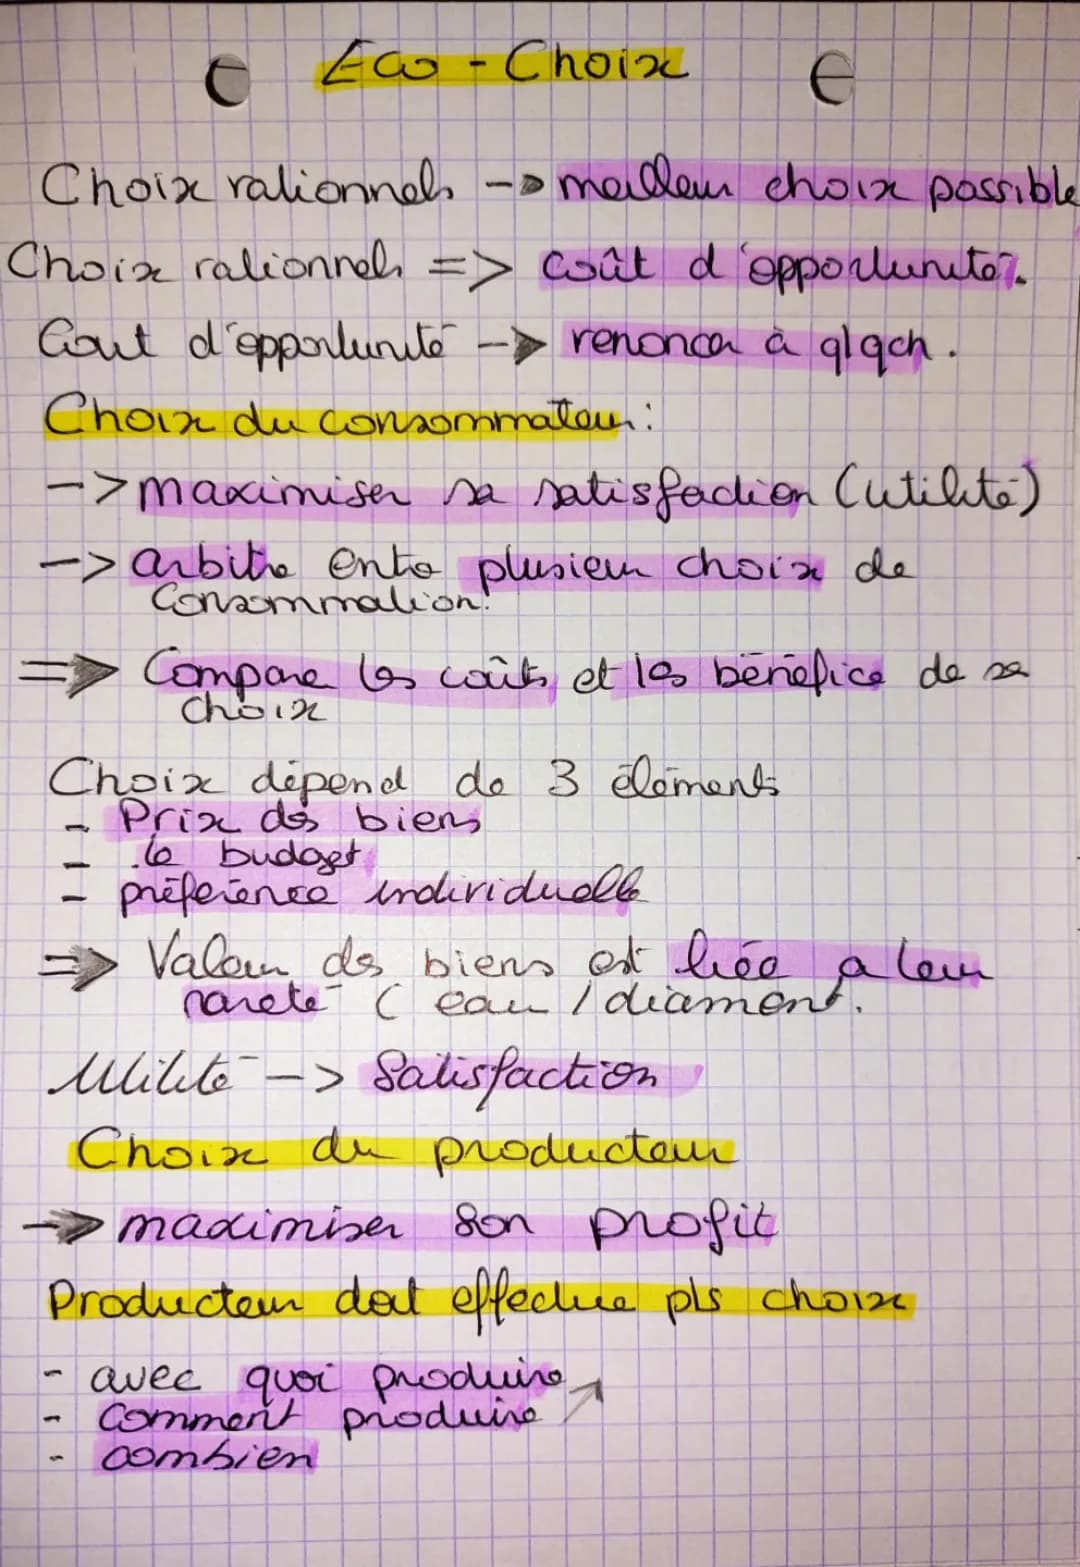 Eco - Choix
Choix rationnels -> meilleur choix possible
Choix rationnels => coût d'opportunité.
Cout d'opportunité -> renoncer à qlqch.
Choix du consommateur :
-> maximiser sa satisfaction (utilité)
-> arbitre entre plusieur choix de
Consommation.
=> Compare les coûts et les bénéfice de sa
choix
Choix dépend de 3 éléments
- Prix des biens
- le budget
- préférence individuelle
=> Valeur des biens est liée a leur
rareté (eau / diamant.
Utilité -> Satisfaction
Choix du producteur
-> maximiser son profit
Producteur doit effectue pls choix
- avec quoi produire
- Comment produire
- combien